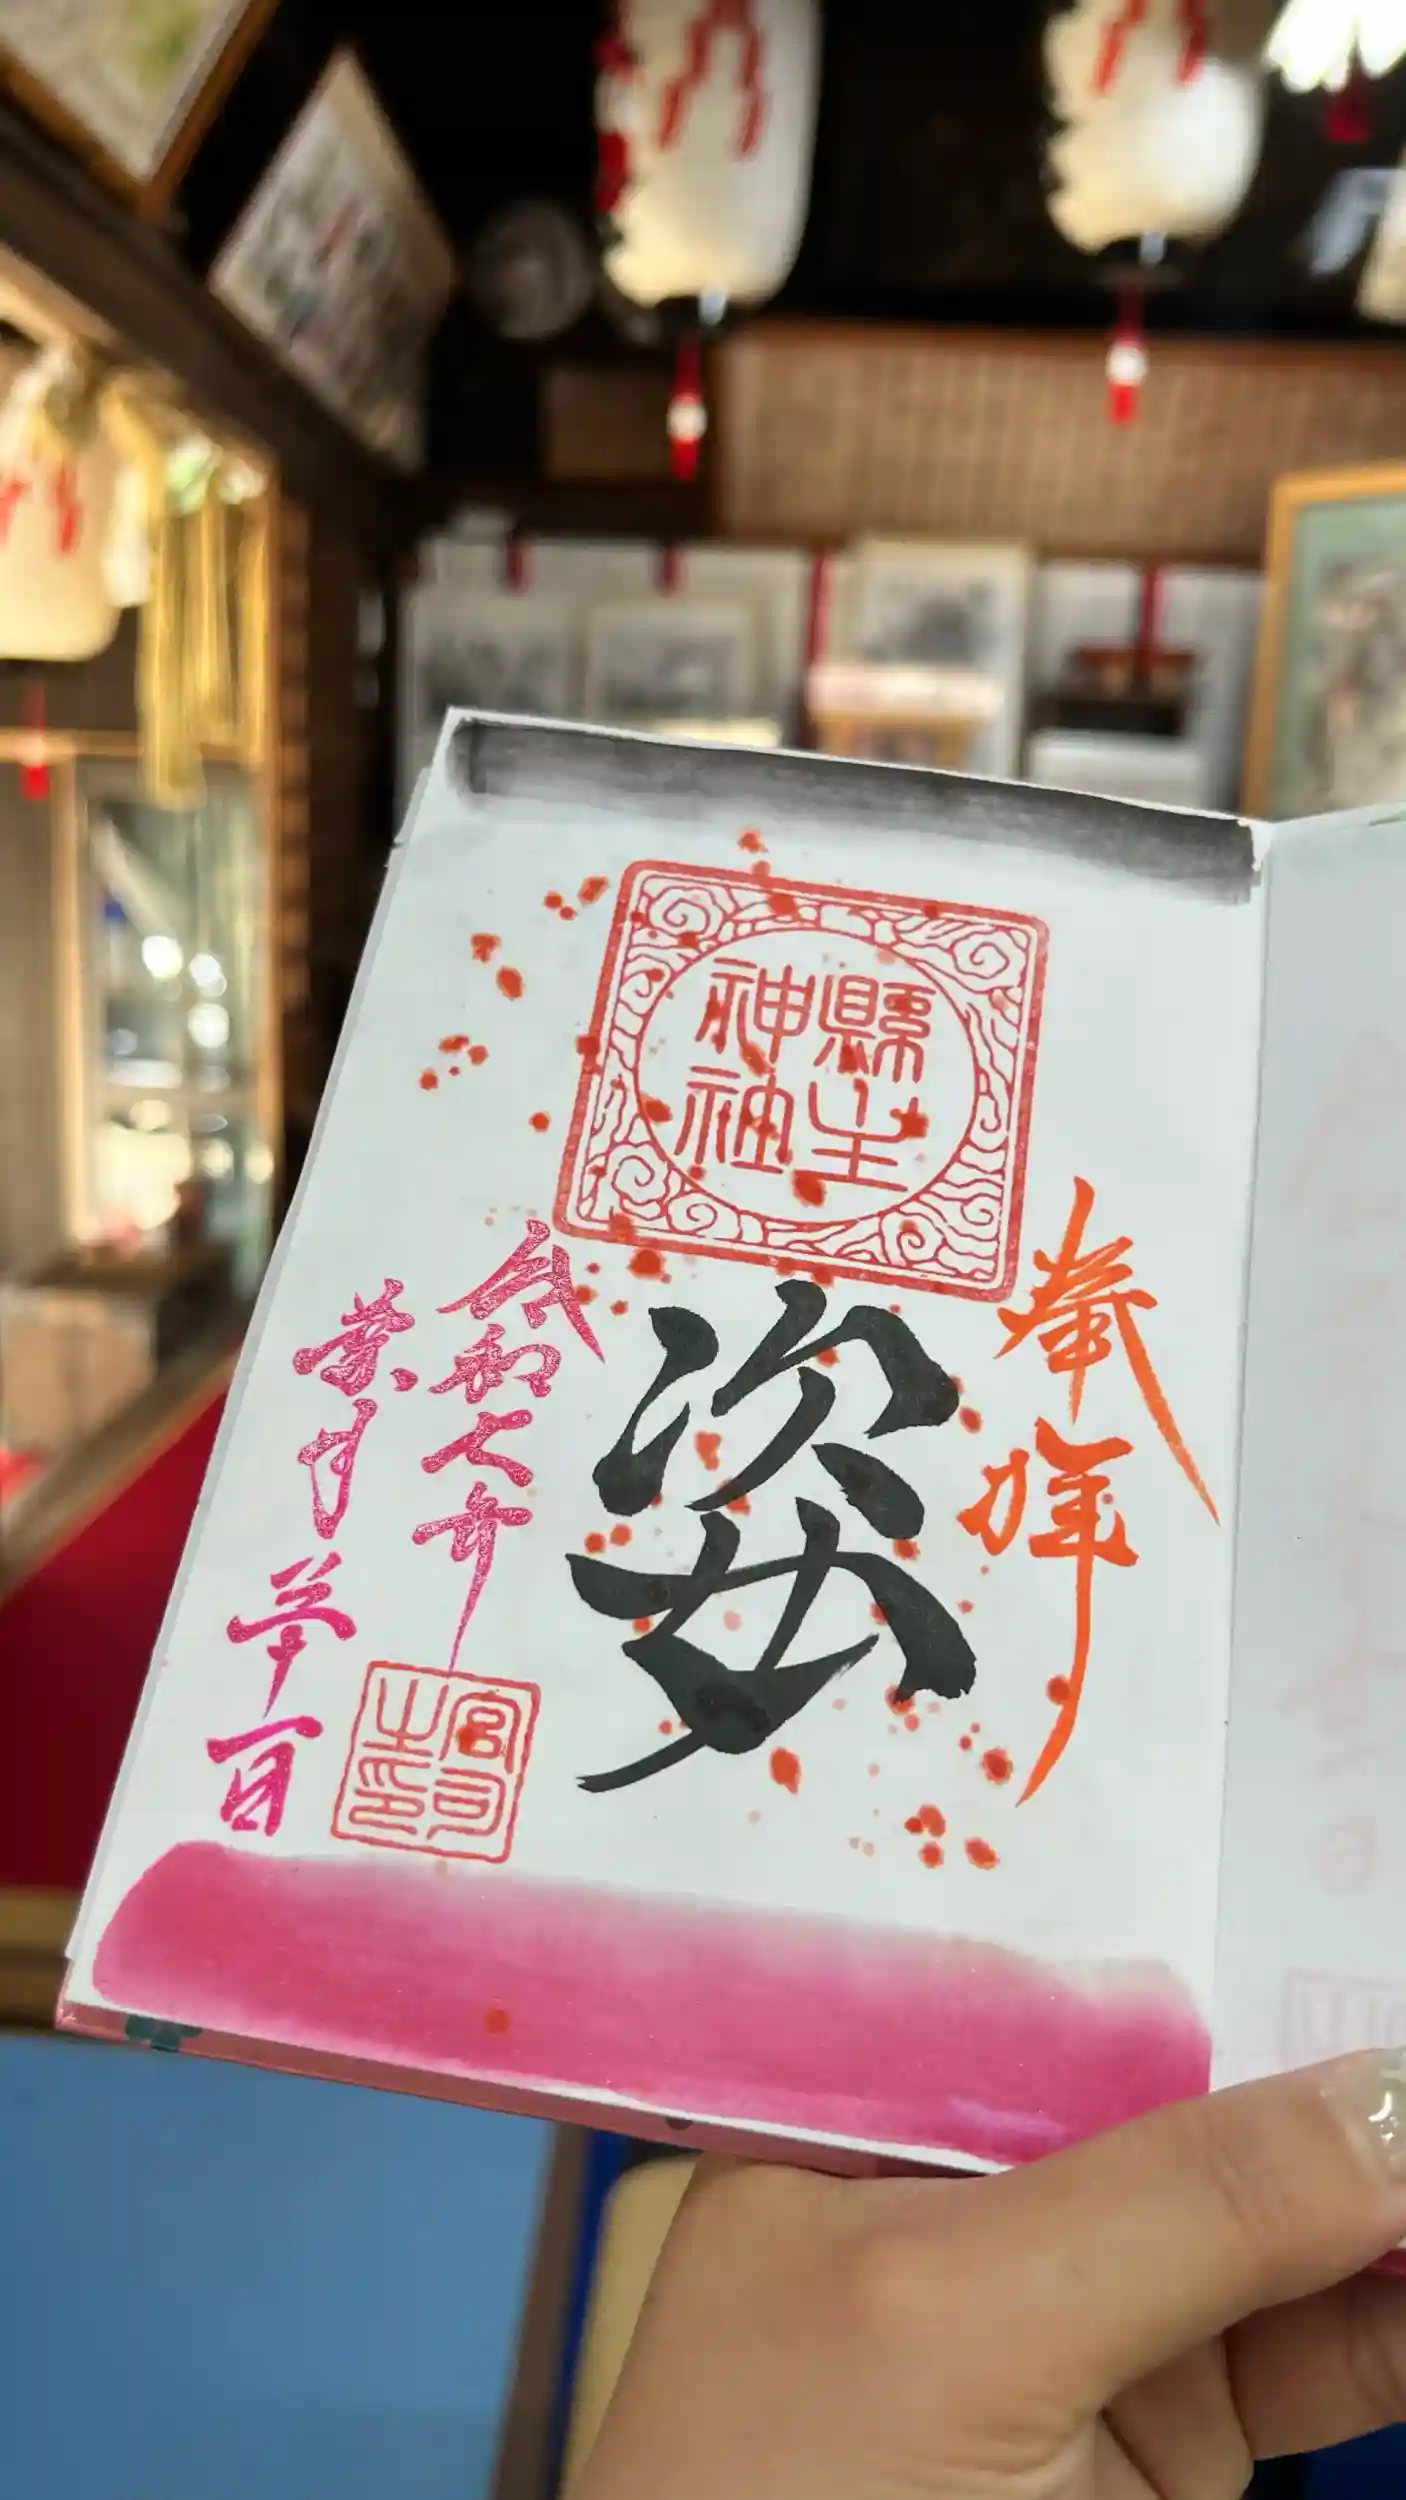 奉拝
縣主
神社
姿
令和七年
葉月 一日
宮司
之印